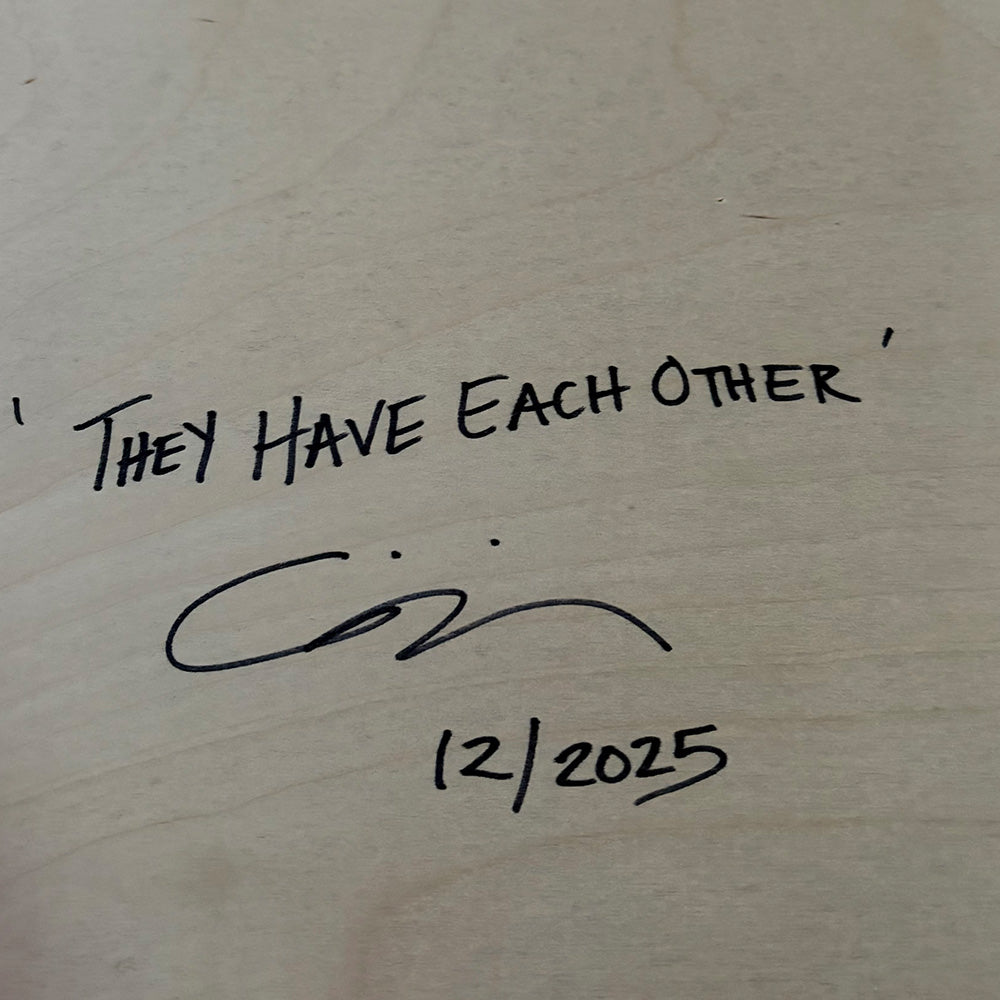 ' THEY HAVE EACH OTHER '
12/2025